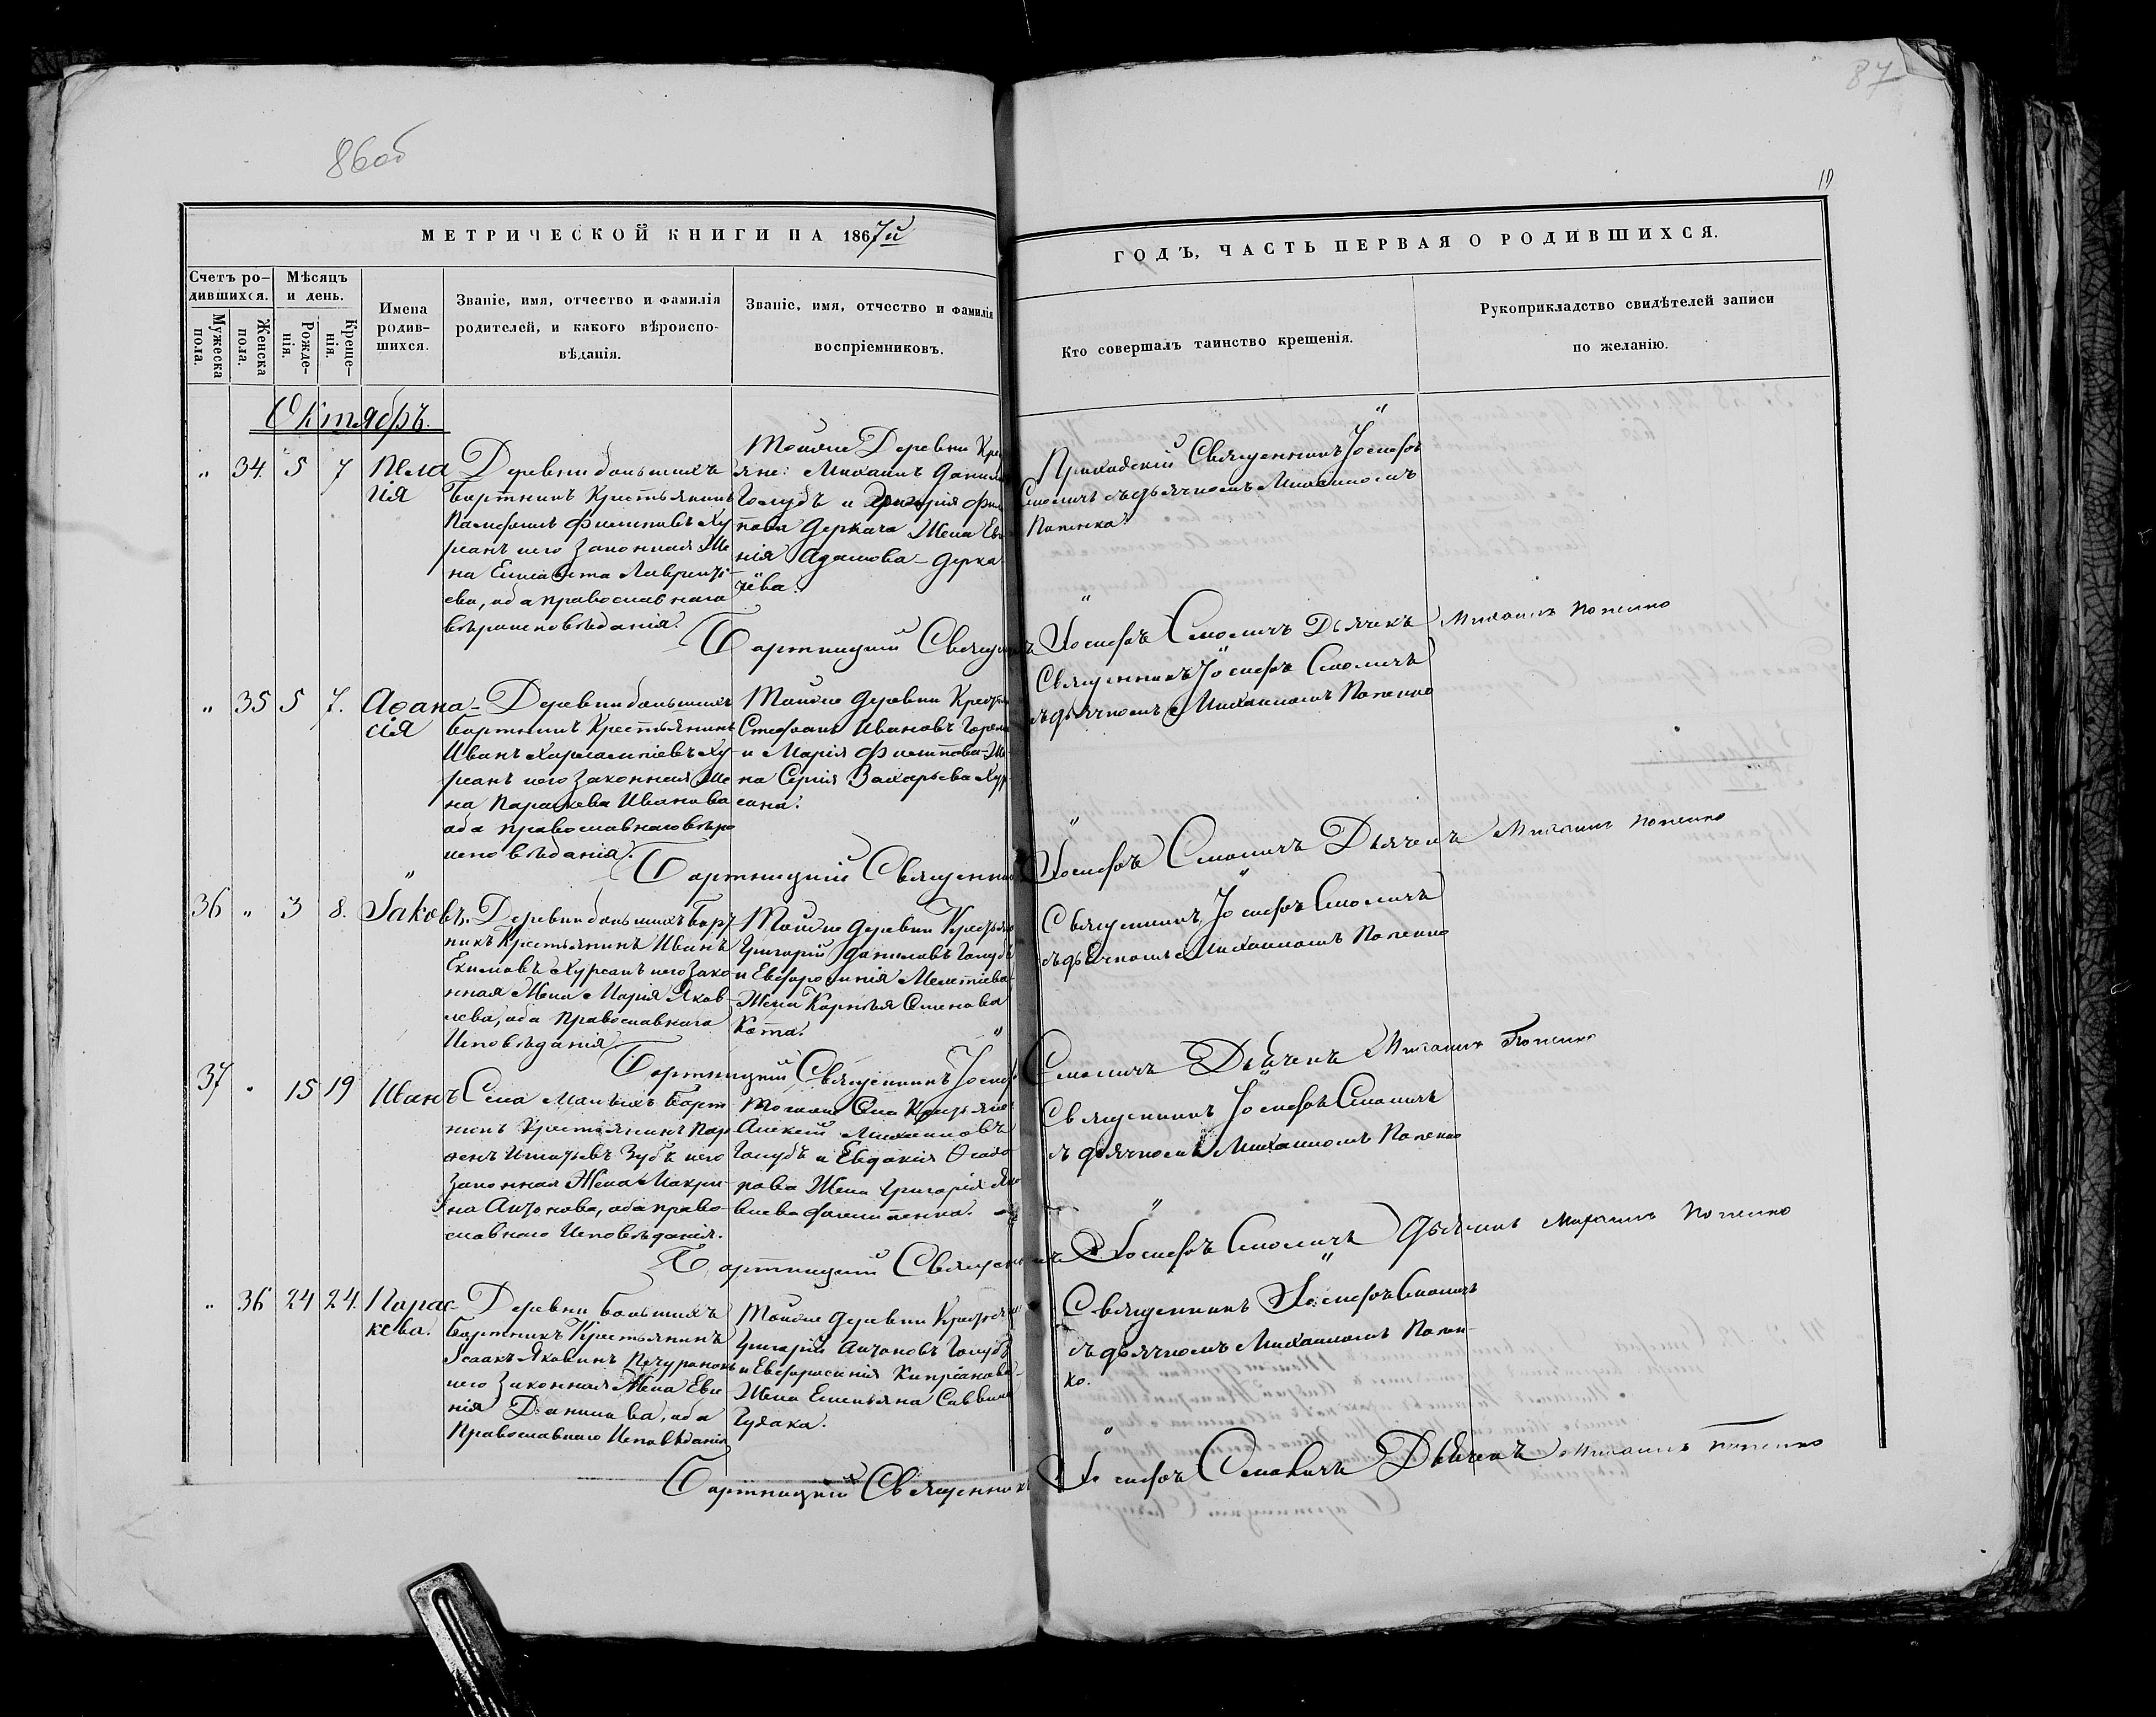 86об
87
МЕТРИЧЕСКОЙ КНИГИ НА 1867й
ГОДЪ, ЧАСТЬ ПЕРВАЯ О РОДИВШИХСЯ.
Счетъ ро-
дившихся.
Мужеска
пола.
Женска
пола.
Мѣсяцъ
и день.
Рожде-
нія.
Креще-
нія.
Имена
родив-
шихся.
Званіе, имя, отчество и фамилія
родителей, и какого вѣроиспо-
вѣданія.
Званіе, имя, отчество и фамилія
воспріемниковъ.
Кто совершалъ таинство крещенія.
Рукоприкладство свидѣтелей записи
по желанію.
Октябрь.
„ 34. 5 7
Пела
гія
Деревни большихъ
Бортникъ Крестьянинъ
Памфилъ Филиповъ Ху
рсанъ иего Законная Же
на Елисавета Лаврентi
ева, оба православнаго
вѣроисповѣданія.
Тойже Деревни Кре
яне: Михаилъ Данил
Голубъ и Григорія Фи
пова Деркача Жена Ев
нія Адамова-Дерка
чёва.
Приходскій Священникъ Іосифъ
Смоличъ съдьячкомъ Михаиломъ
Попенко.
Бортницкій Священникъ Іосифъ Смоличъ Дьячекъ Михаилъ Попенко
„ 35 5 7.
Аѳана-
сія
Деревни большихъ
Бортникъ Крестьянинъ
Иванъ Харлампіевъ Ху-
рсанъ иего Законная Же
на Параскева Иванова
оба православнаго вѣро
исповѣданія.
Тойже деревни Крестья
Стефанъ Ивановъ
и Марія Филипова-Же-
на Сергія Захарьева Хур-
сана.
Священникъ Іосифъ Смоличъ
съдьячкомъ Михаиломъ Попенко
Бортницкій Священникъ Іосифъ Смоличъ Дьячекъ Михаилъ Попенко
36 „ 3 8.
Іаковъ.
Деревни большихъ Борт
никъ Крестьянинъ Иванъ
Екимовъ Хурсанъ иего Зако-
нная Жена Марія Яков-
лева, оба Православнаго
Исповѣданія
Тойже деревни Крестьяне
Григорій Даниловъ Голубъ
и Евфросинія Мелетіева-
Жена Корнѣя Семенова
Кота.
Священникъ Іосифъ Смоличъ
съдьячкомъ Михаиломъ Попенко
Бортницкій Священникъ Іосифъ Смоличъ Дьячекъ Михаилъ Попенко
37 „ 15 19
Иванъ
Села Малыхъ Борт
никъ Крестьянинъ Пар
ѳенъ Игнатьевъ Зубъ иего
Законная Жена Макри-
на Антонова, оба право-
славнаго Исповѣданія.
Тогоже Села Крестьяне:
Алексій Михаиловъ
Голубъ и Евдокія Ѳеодо
рова Жена Григорія
Священникъ Іосифъ Смоличъ
съ дьячкомъ Михаиломъ Попенко
Бортницкій Священникъ Іосифъ Смоличъ Дьячекъ Михаилъ Попенко
„ 36 24 24.
Парас-
кева.
Деревни Большихъ
Бортникъ Крестьянинъ
Ісаакъ Яковинъ
иего Законная Жена Евге
нія Данилова, оба
Православнаго Исповѣданія
Тойже деревни Крестьяне
Григорій Антоновъ Голубъ
и Евфросинія Кипріанова-
Жена Емельяна Саввина
Гудака.
Священникъ Іосифъ Смоличъ
съ дьячкомъ Михаиломъ Попен-
ко.
Бортницкій Священникъ Іосифъ Смоличъ Дьячекъ Михаилъ Попенко